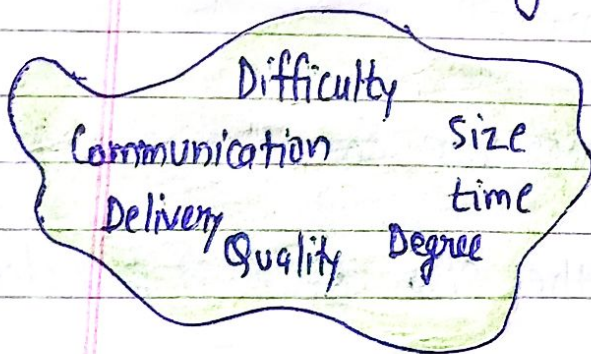 Difficulty
Communication size
Delivery time
Quality Degree